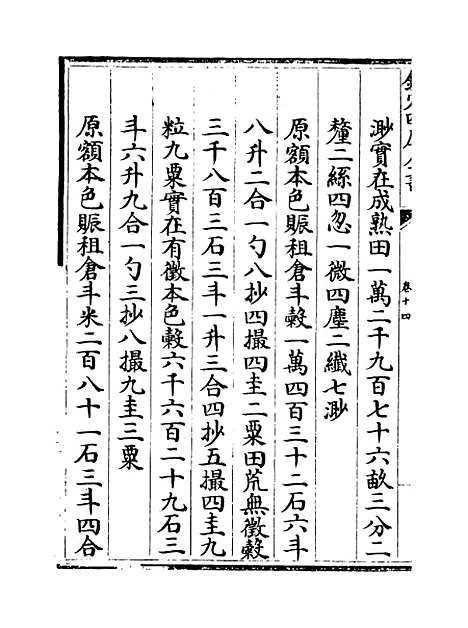 欽定四庫全書
卷十四
渺實在成熟田一萬二千九百七十六畝三分二
釐二絲四忽一微四塵二纖七渺
原額本色賬租倉斗穀一萬四百三十二石六斗
八升二合一勺八抄四撮四圭二粟田荒無徵穀
三千八百三石三斗一升三合四抄五撮四圭九
粒九粟實在有徵本色穀六千六百二十九石三
斗六升九合一勺三抄八撮九圭三粟
原額本色賬租倉斗米二百八十一石三斗四合